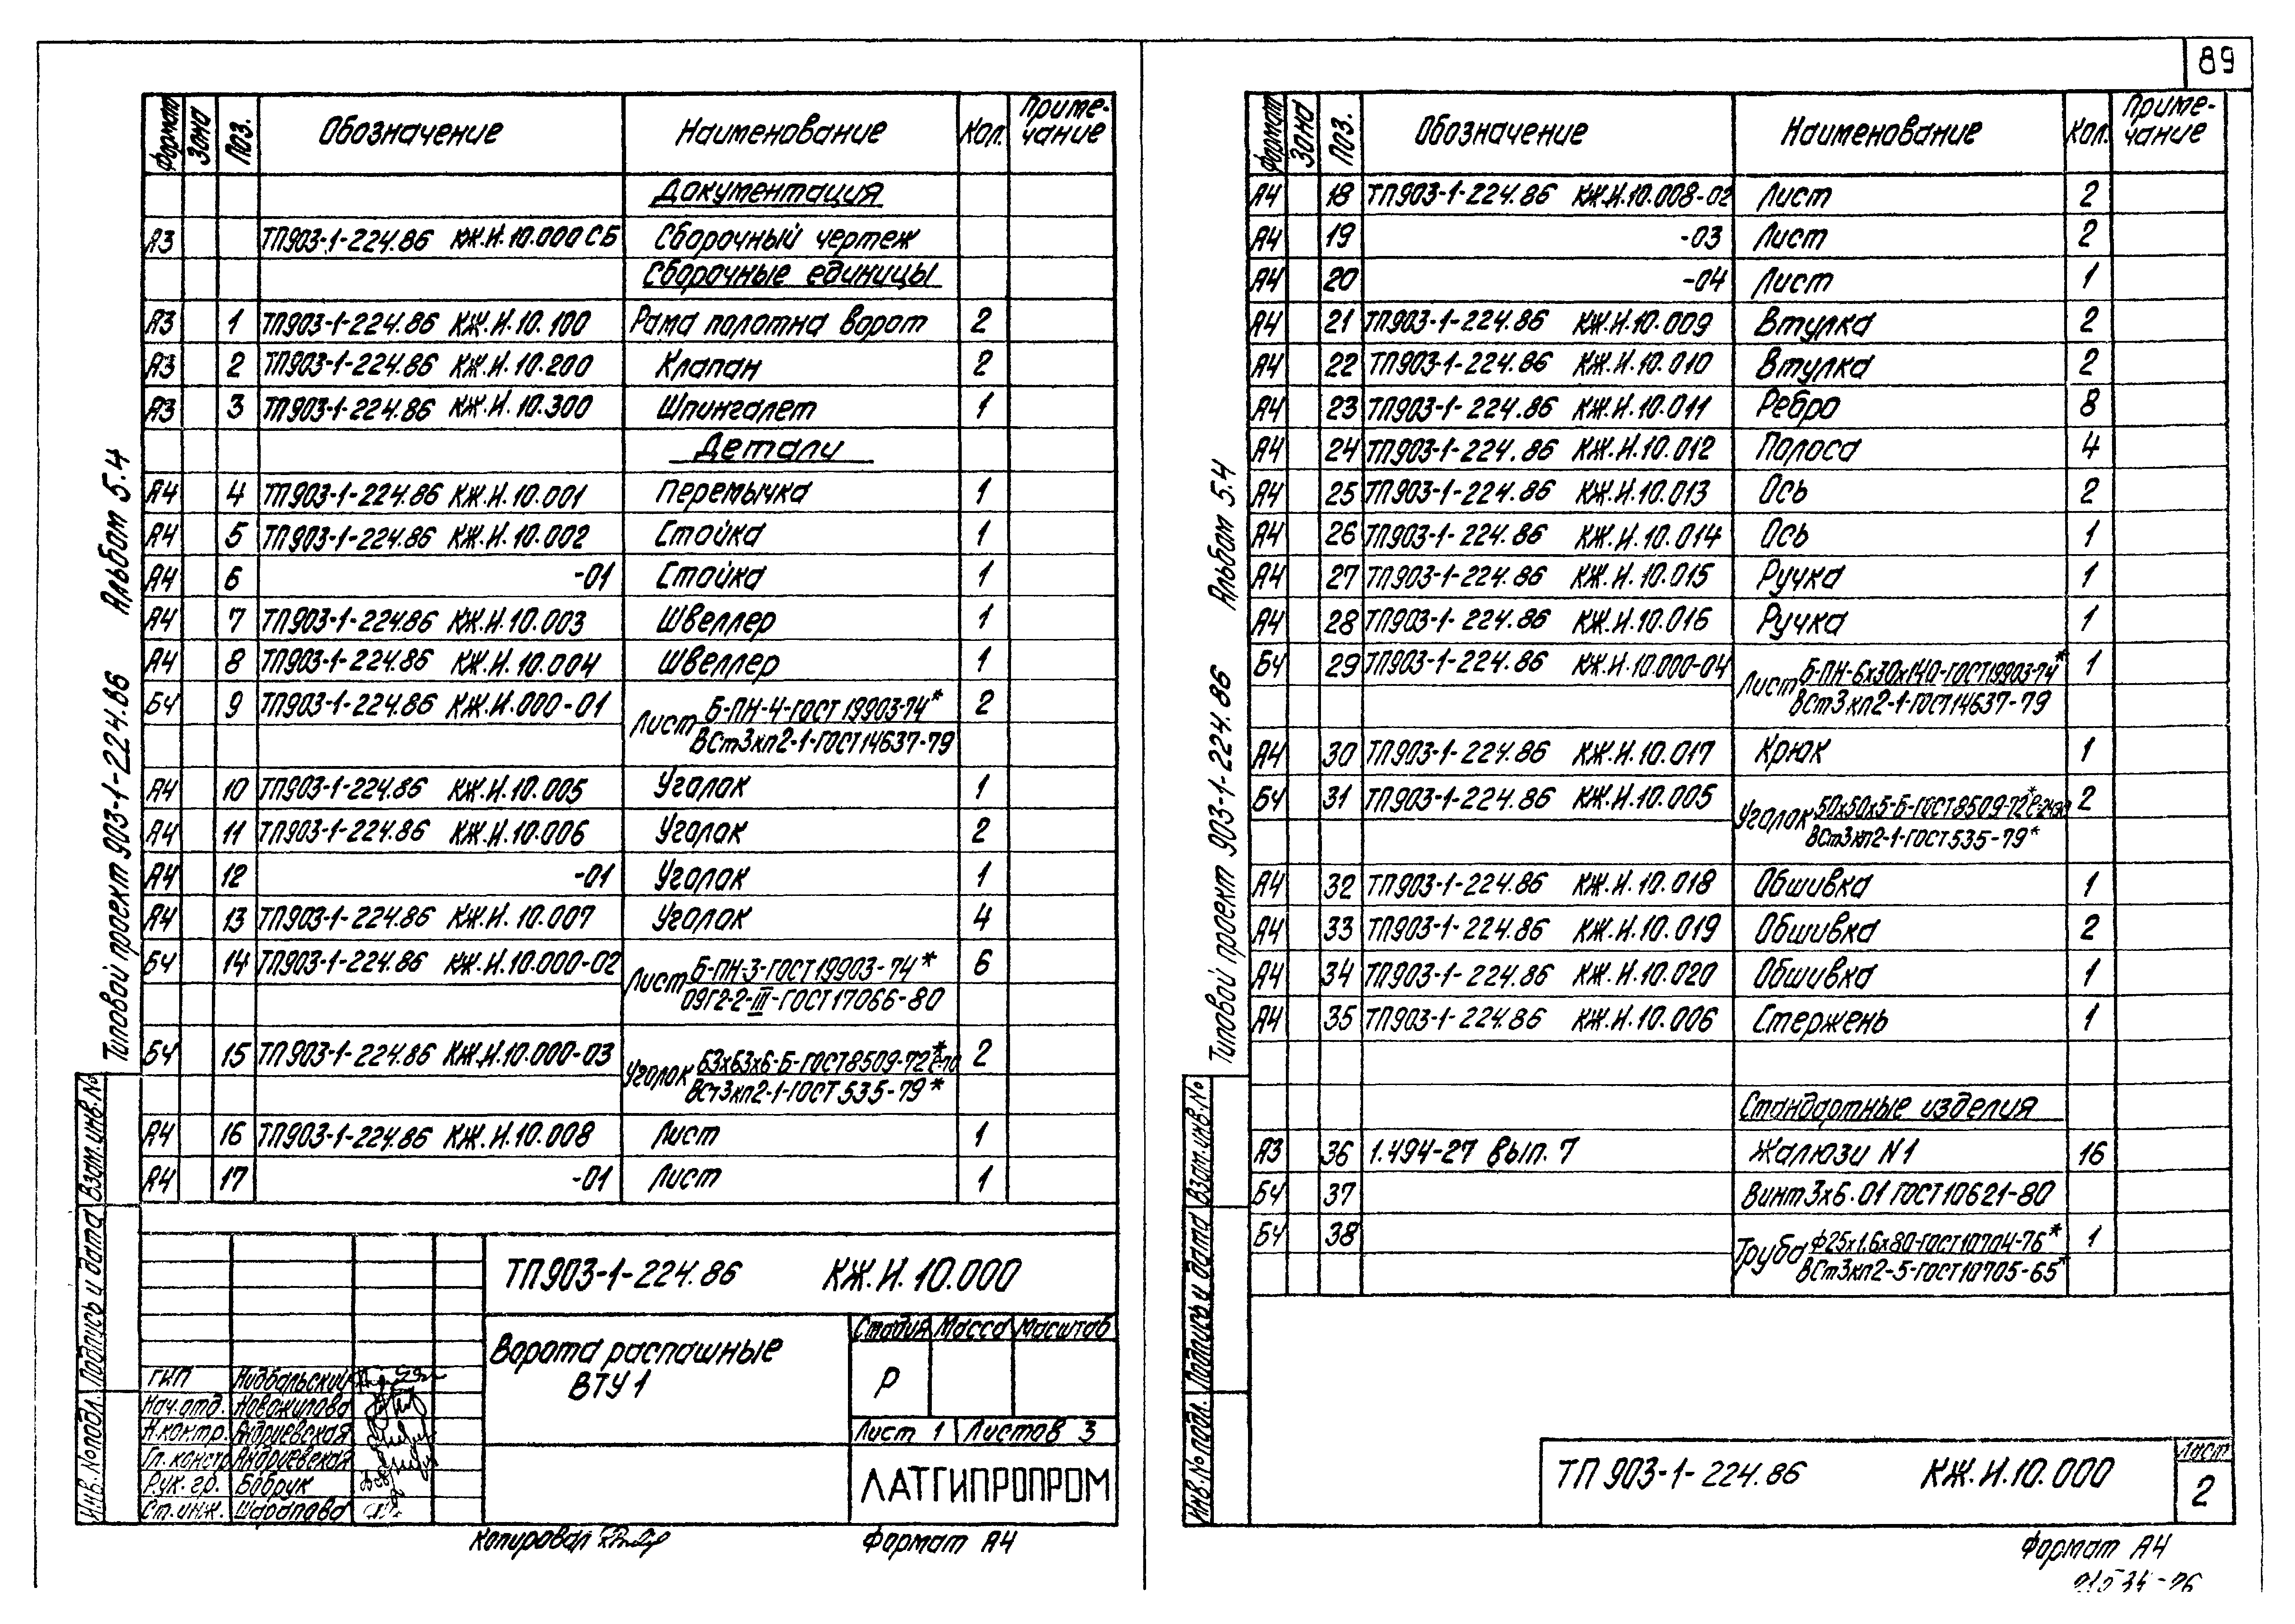 89
Формат Зона Поз. Обозначение Наименование Кол. Приме-
чание
Документация
А3 ТП903-1-224.86 КЖ.И.10.000 СБ Сборочный чертеж
Сборочные единицы
А3 1 ТП903-1-224.86 КЖ.И.10.100 Рама полотна ворот 2
А3 2 ТП903-1-224.86 КЖ.И.10.200 Клапан 2
А3 3 ТП903-1-224.86 КЖ.И.10.300 Шпингалет 1
Детали
А4 4 ТП903-1-224.86 КЖ.И.10.001 Перемычка 1
А4 5 ТП903-1-224.86 КЖ.И.10.002 Стойка 1
А4 6 -01 Стойка 1
А4 7 ТП903-1-224.86 КЖ.И.10.003 Швеллер 1
А4 8 ТП903-1-224.86 КЖ.И.10.004 Швеллер 1
БЧ 9 ТП903-1-224.86 КЖ.И.000-01 Лист Б-ПН-4-ГОСТ 19903-74* 2
ВСт3кп2-1-ГОСТ14637-79
А4 10 ТП903-1-224.86 КЖ.И.10.005 Уголок 1
А4 11 ТП903-1-224.86 КЖ.И.10.006 Уголок 2
А4 12 -01 Уголок 1
А4 13 ТП903-1-224.86 КЖ.И.10.007 Уголок 4
БЧ 14 ТП903-1-224.86 КЖ.И.10.000-02 Лист Б-ПН-3-ГОСТ19903-74* 6
09Г2-2-III-ГОСТ17066-80
БЧ 15 ТП903-1-224.86 КЖ.И.10.000-03 Уголок 63х63х6-Б-ГОСТ8509-72* 2
ВСт3кп2-1-ГОСТ 535-79*
А4 16 ТП903-1-224.86 КЖ.И.10.008 Лист 1
А4 17 -01 Лист 1
Типовой проект 903-1-224.86 Альбом 5.4
Инв.№подл. Подпись и дата Взам.инв.№
ТП903-1-224.86 КЖ.И.10.000
Ворота распашные
ВТУ1
Стадия Масса Масштаб
Р
Лист 1 Листов 3
ЛАТГИПРОПРОМ
ГИП Нидбальский
Нач.отд. Новожилова
Н.контр. Андриевская
Гл.констр Андриевская
Рук.гр. Бобрук
Ст.инж.
Копировал
Формат А4
Формат Зона Поз. Обозначение Наименование Кол. Приме-
чание
А4 18 ТП903-1-224.86 КЖ.И.10.008-02 Лист 2
А4 19 -03 Лист 2
А4 20 -04 Лист 1
А4 21 ТП903-1-224.86 КЖ.И.10.009 Втулка 2
А4 22 ТП903-1-224.86 КЖ.И.10.010 Втулка 2
А4 23 ТП903-1-224.86 КЖ.И.10.011 Ребро 8
А4 24 ТП903-1-224.86 КЖ.И.10.012 Полоса 4
А4 25 ТП903-1-224.86 КЖ.И.10.013 Ось 2
А4 26 ТП903-1-224.86 КЖ.И.10.014 Ось 1
А4 27 ТП903-1-224.86 КЖ.И.10.015 Ручка 1
А4 28 ТП903-1-224.86 КЖ.И.10.016 Ручка 1
БЧ 29 ТП903-1-224.86 КЖ.И.10.000-04 Лист Б-ПН-6х30х140-ГОСТ19903-74* 1
ВСт3кп2-1-ГОСТ14637-79
А4 30 ТП903-1-224.86 КЖ.И.10.017 Крюк 1
БЧ 31 ТП903-1-224.86 КЖ.И.10.005 Уголок 50х50х5-Б-ГОСТ8509-72* 2
ВСт3кп2-1-ГОСТ535-79*
А4 32 ТП903-1-224.86 КЖ.И.10.018 Обшивка 1
А4 33 ТП903-1-224.86 КЖ.И.10.019 Обшивка 2
А4 34 ТП903-1-224.86 КЖ.И.10.020 Обшивка 1
А4 35 ТП903-1-224.86 КЖ.И.10.006 Стержень 1
Стандартные изделия
А3 36 1.494-27 вып. 7 Жалюзи N1 16
БЧ 37 Винт 3х6.01 ГОСТ10621-80
БЧ 38 Труба ф25х1.6х80-ГОСТ10704-76* 1
ВСт3кп2-5-ГОСТ10705-65*
Типовой проект 903-1-224.86 Альбом 5.4
Инв.№подл. Подпись и дата Взам.инв.№
ТП 903-1-224.86 КЖ.И.10.000
Лист
2
Формат А4